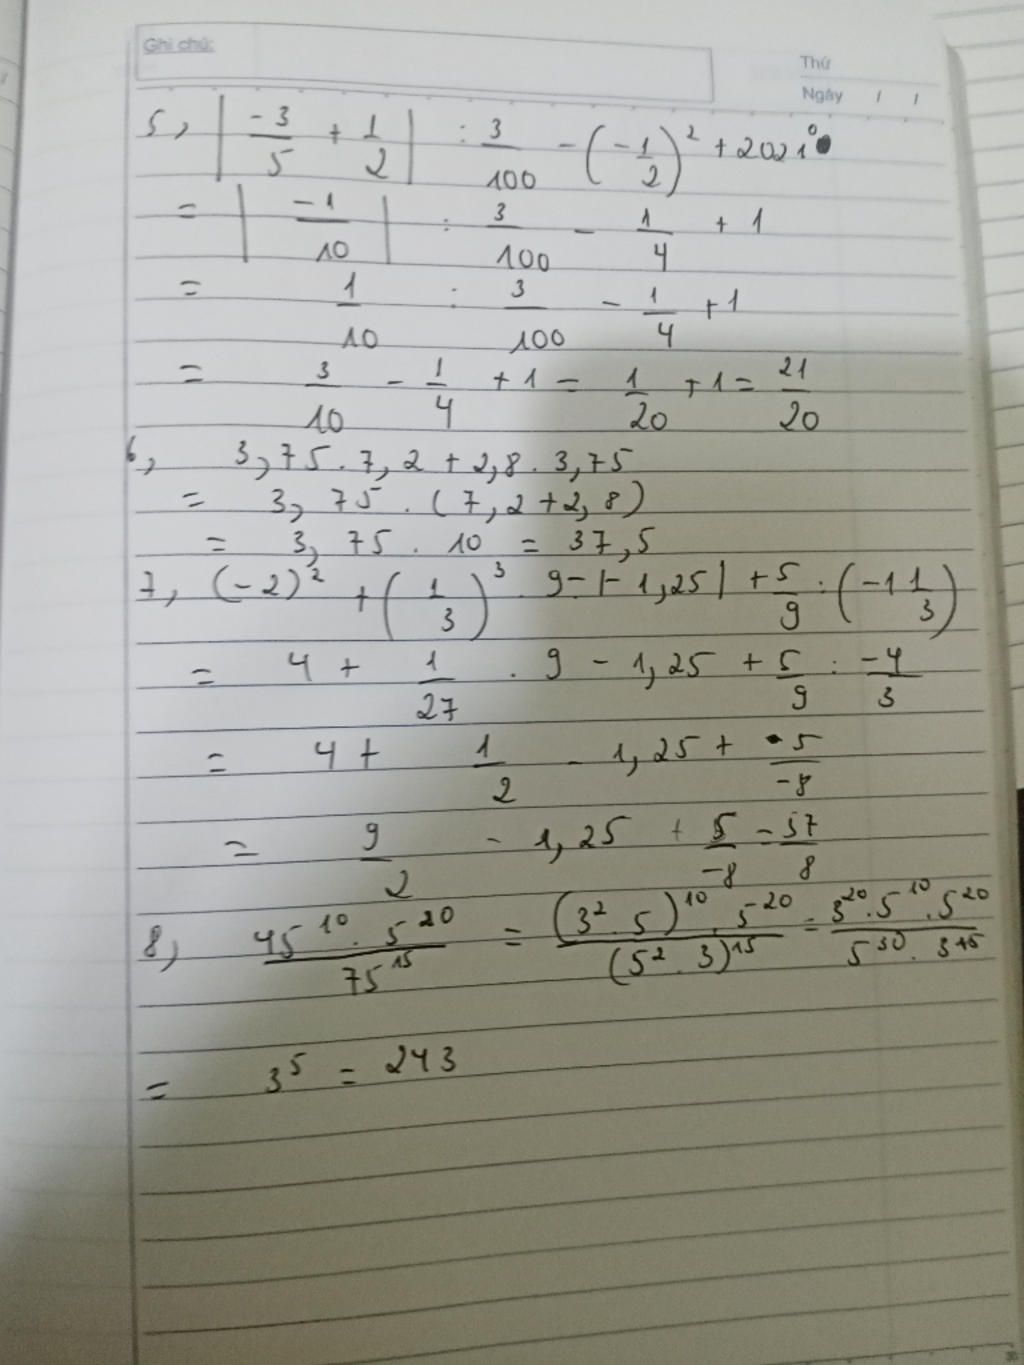 Ghi chú:
Thứ
Ngày / /
5, | -3/5 + 1/2 | : 3/100 - (-1/2)² + 2021⁰
= | -1/10 | : 3/100 - 1/4 + 1
= 1/10 : 3/100 - 1/4 + 1
= 3/10 - 1/4 + 1 = 1/20 + 1 = 21/20
6, 3,75 . 7,2 + 2,8 . 3,75
= 3,75 . (7,2 + 2,8)
= 3,75 . 10 = 37,5
7, (-2)² + (1/3)³ . 9 - |-1,25| + 5/9 : (-1 1/3)
= 4 + 1/27 . 9 - 1,25 + 5/9 : -4/3
= 4 + 1/2 - 1,25 + 5/-8
= 9/2 - 1,25 + 5/-8 = 37/8
8, 45¹⁰ . 5²⁰ / 75¹⁵ = (3² . 5)¹⁰ . 5²⁰ / (5² . 3)¹⁵ = 3²⁰ . 5¹⁰ . 5²⁰ / 5³⁰ . 3¹⁵
= 3⁵ = 243